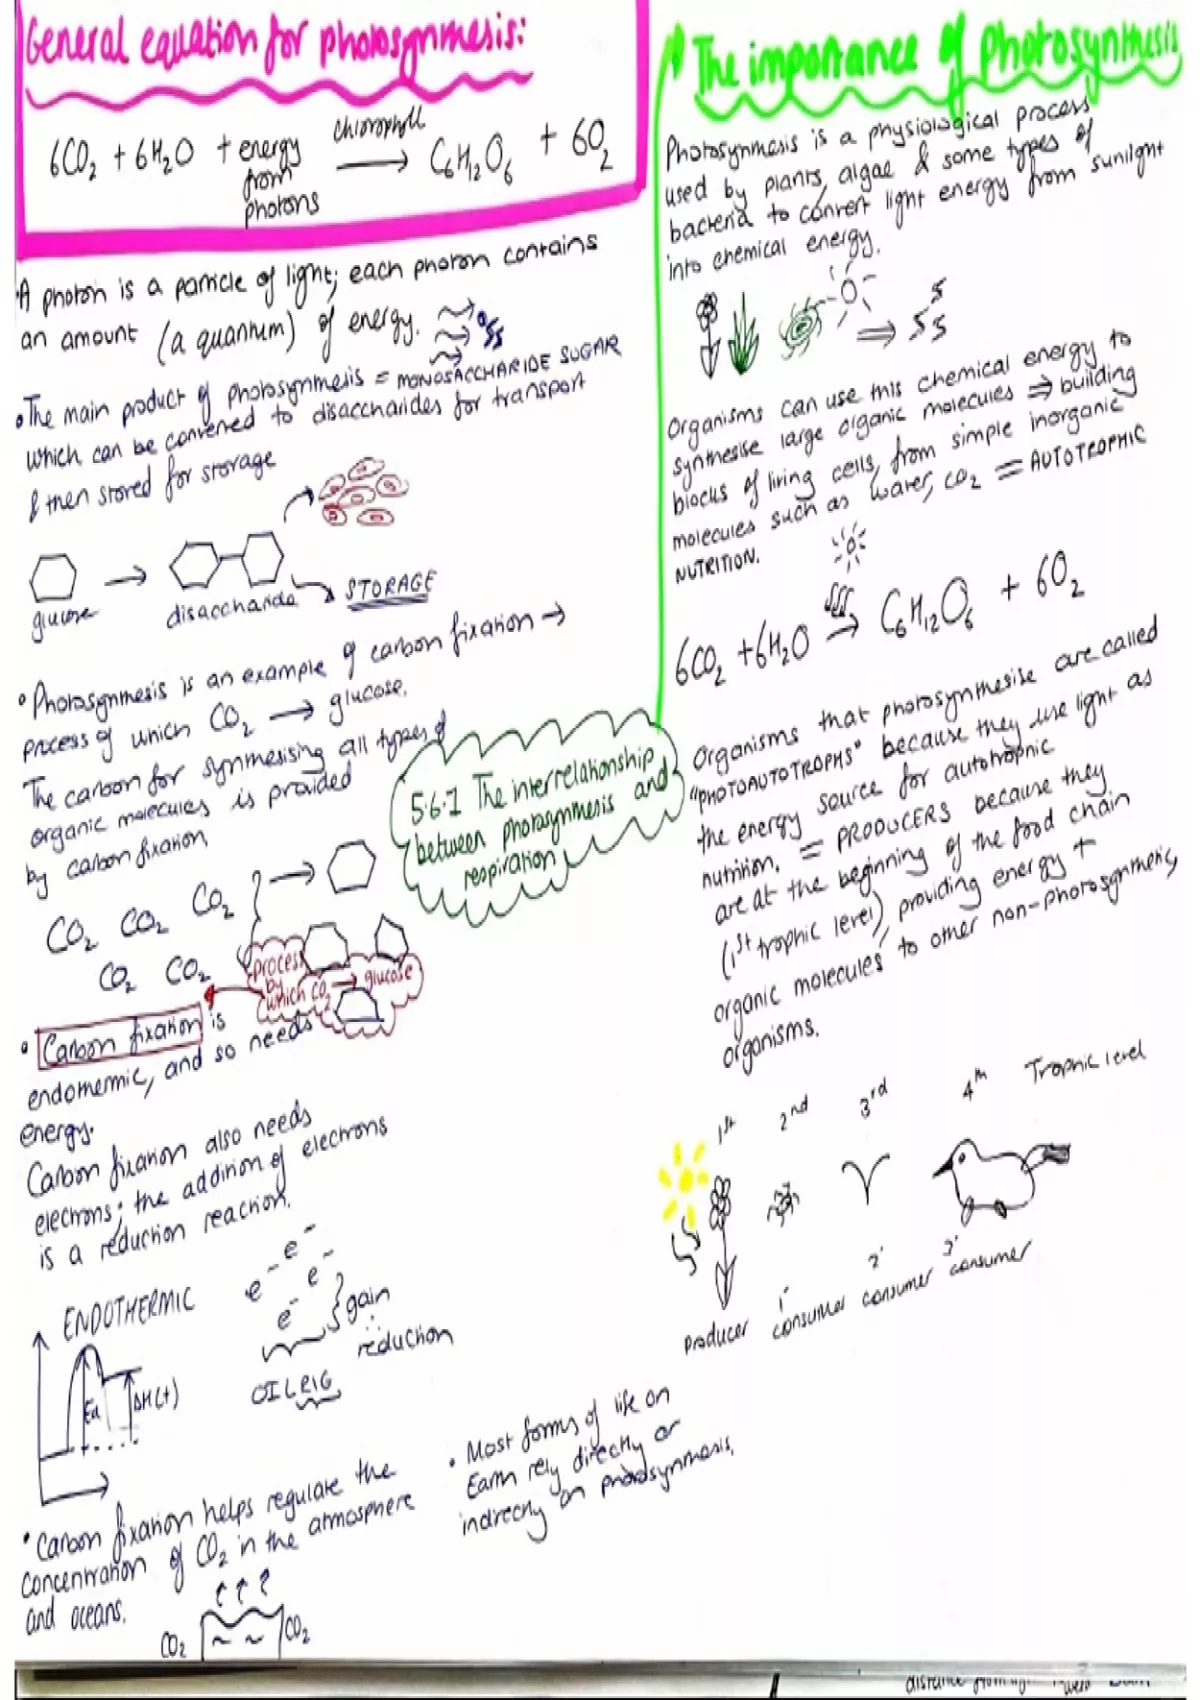 General equation for photosynthesis:
6CO₂ + 6H₂O + energy from photons chlorophyll → C₆H₁₂O₆ + 6O₂
• A photon is a particle of light; each photon contains
an amount (a quantum) of energy.
• The main product of photosynthesis = MONOSACCHARIDE SUGAR
which can be converted to disaccharides for transport
& then stored for storage
glucose → disaccharide → STORAGE
• Photosynthesis is an example of carbon fixation →
process of which CO₂ → glucose.
The carbon for synthesising all types of
organic molecules is provided
by carbon fixation.
CO₂ CO₂ CO₂
CO₂ CO₂
process
by
which CO₂ → glucose
• Carbon fixation is
endothermic, and so needs
energy.
Carbon fixation also needs
electrons; the addition of electrons
is a reduction reaction.
ENDOTHERMIC
Ea ΔH(+)
e⁻ e⁻
e⁻ e⁻
gain
∴
reduction
OILRIG
• Carbon fixation helps regulate the
concentration of CO₂ in the atmosphere
and oceans.
CO₂ CO₂
5.6.1 The interrelationship
between photosynthesis and
respiration
The importance of photosynthesis
Photosynthesis is a physiological process
used by plants, algae & some types of
bacteria to convert light energy from sunlight
into chemical energy.
Organisms can use this chemical energy to
synthesise large organic molecules ⇒ building
blocks of living cells, from simple inorganic
molecules such as water, CO₂ = AUTOTROPHIC
NUTRITION.
6CO₂ + 6H₂O → C₆H₁₂O₆ + 6O₂
Organisms that photosynthesise are called
"PHOTOAUTOTROPHS" because they use light as
the energy source for autotrophic
nutrition. = PRODUCERS because they
are at the beginning of the food chain
(1st trophic level), providing energy +
organic molecules to other non-photosynthetic
organisms.
1st 2nd 3rd 4th Trophic level
producer 1' consumer 2' consumer 3' consumer
• Most forms of life on
Earth rely directly or
indirectly on photosynthesis.